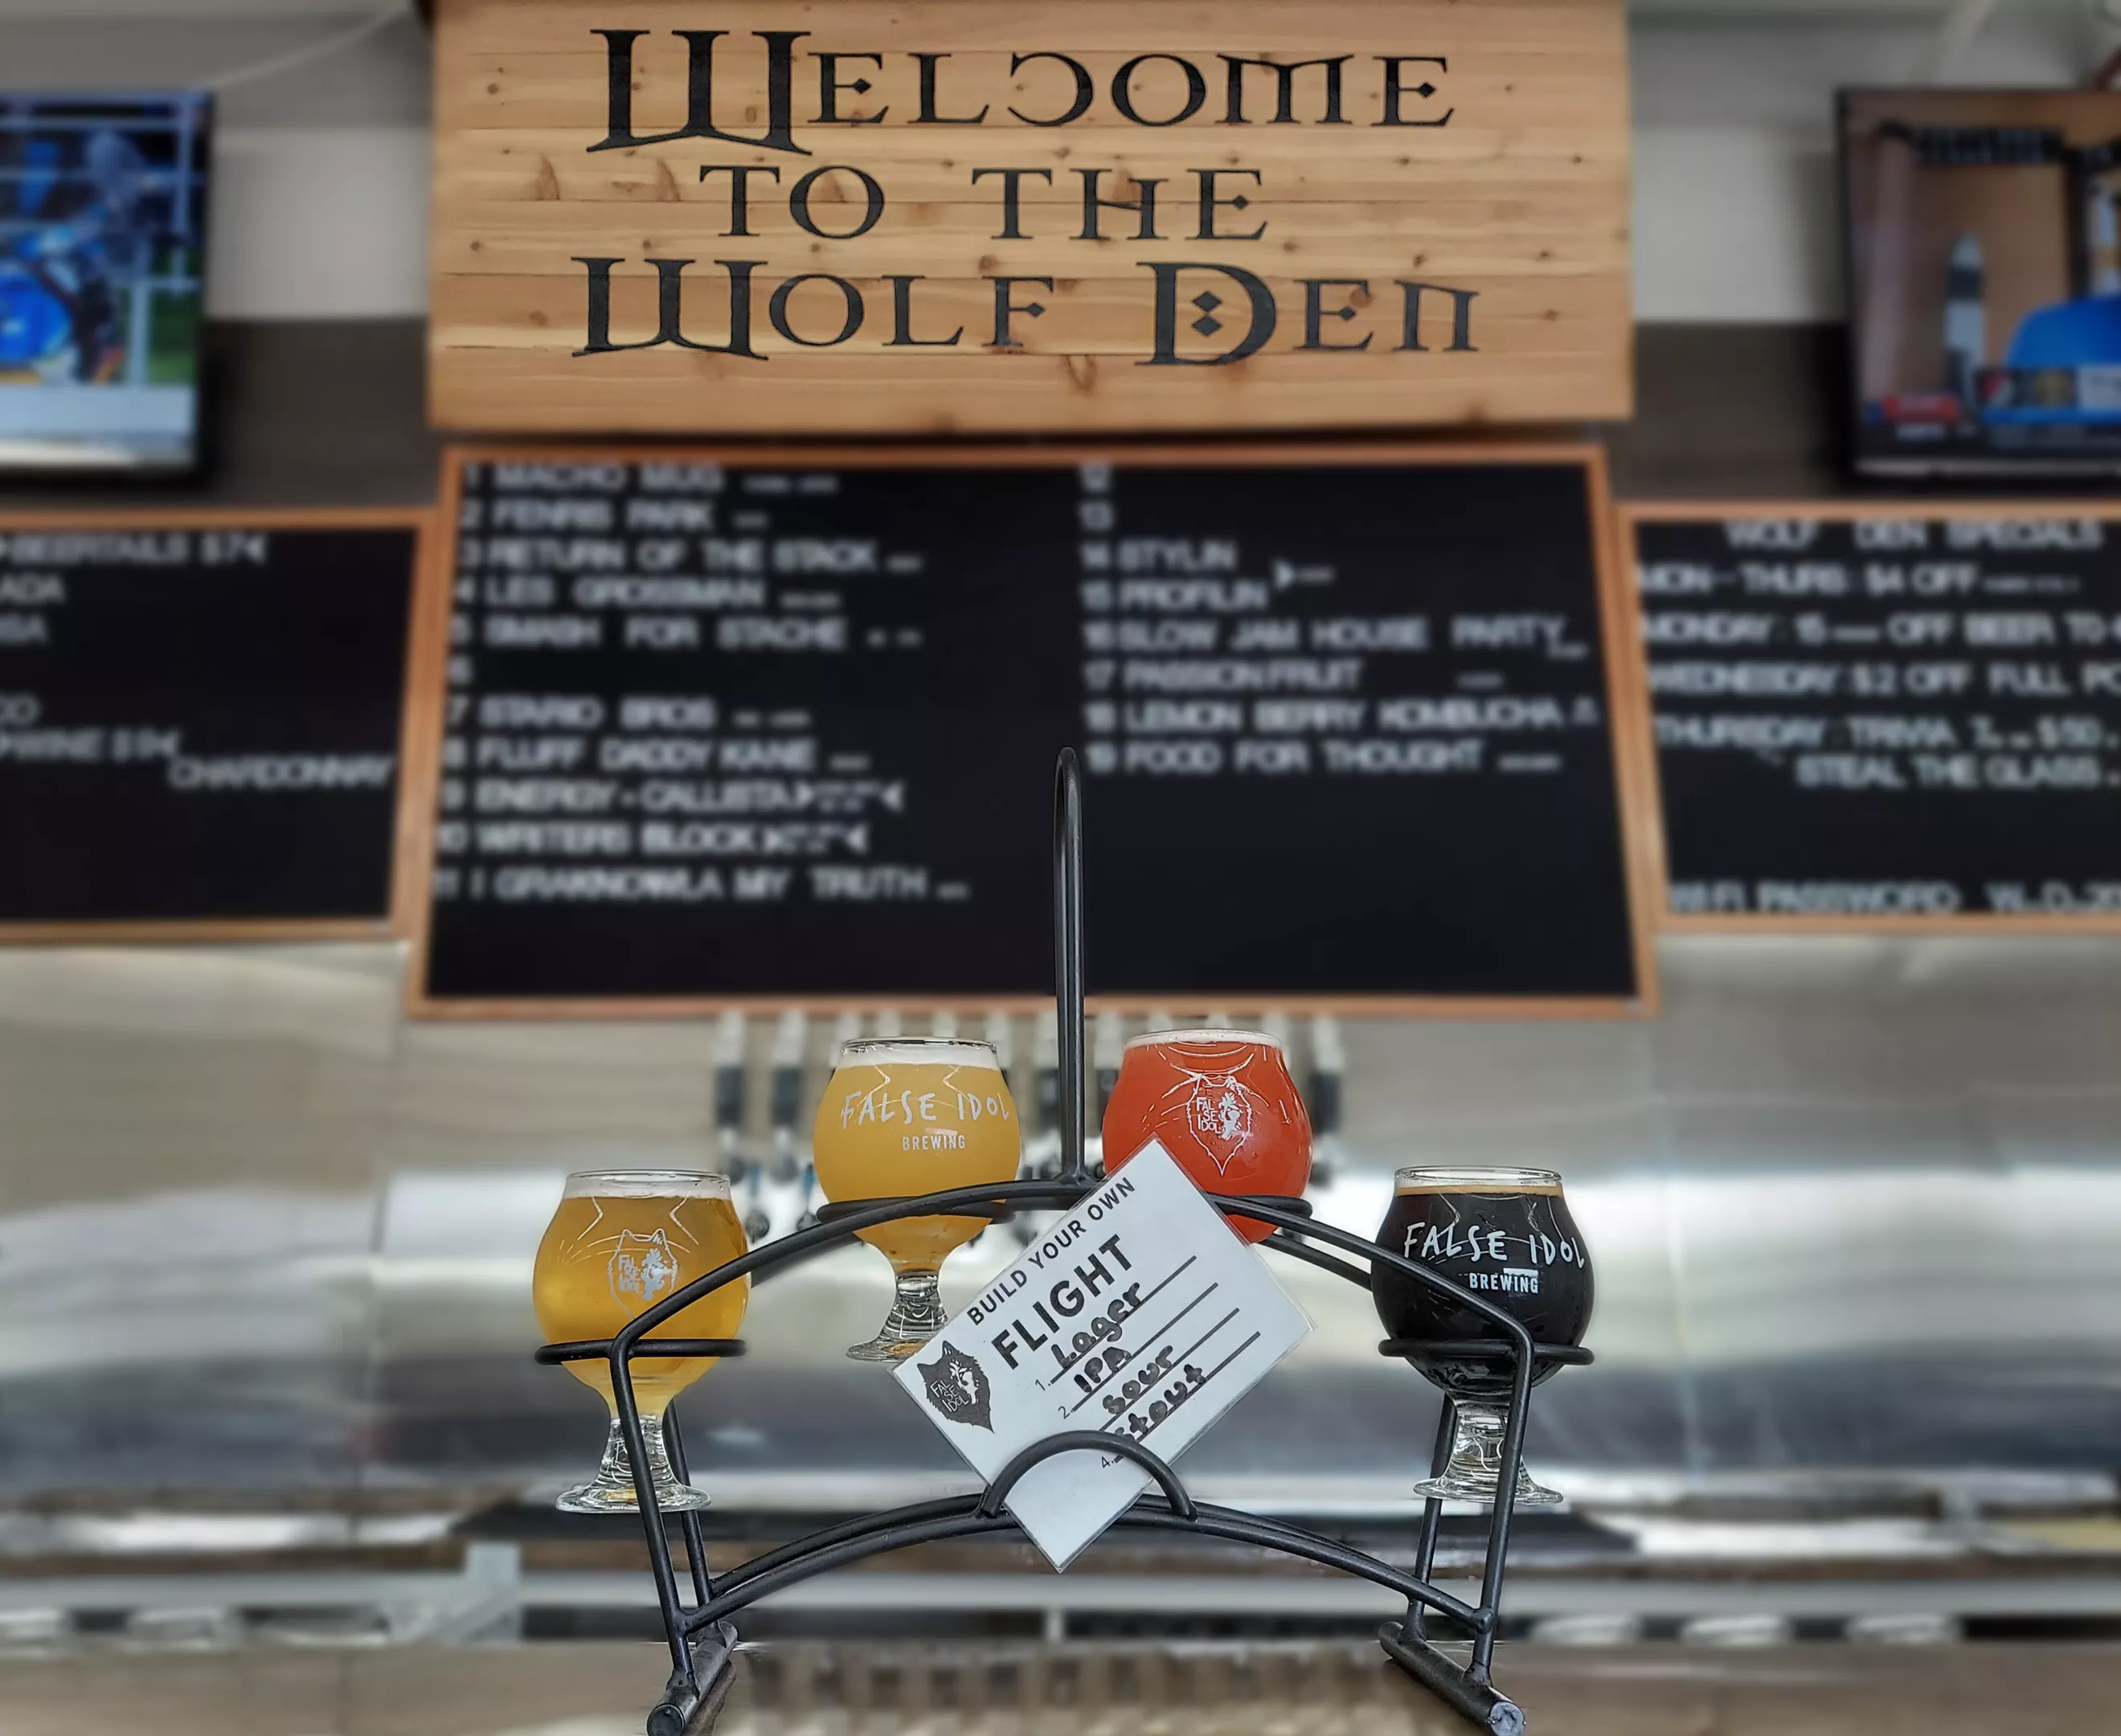 WELCOME
TO THE
WOLF DEN
BEERTAILS $7
WINE $9
CHARDONNAY
1 MACHO MUG
2 FENRIS PARK
3 RETURN OF THE STACK
4 LES GROSSMAN
5 SMASH FOR STACHE
6
7 STARIO BROS
8 FLUFF DADDY KANE
9 ENERGY - CALLISTA
10 WRITERS BLOCK
11 I GRAKNOWLA MY TRUTH
12
13
14 STYLIN
15 PROFILIN
16 SLOW JAM HOUSE PARTY
17 PASSIONFRUIT
18 LEMON BERRY KOMBUCHA
19 FOOD FOR THOUGHT
WOLF DEN SPECIALS
MON-THURS: $4 OFF
MONDAY: 15 OFF BEER TO
WEDNESDAY: $2 OFF FULL PO
THURSDAY: TRIVIA 7 $50
STEAL THE GLASS
WIFI PASSWORD
FALSE IDOL
BREWING
FALSE IDOL
FALSE IDOL
FALSE IDOL
BREWING
BUILD YOUR OWN
FLIGHT
1. Lager
2. IPA
Sour
4. Stout
FALSE IDOL